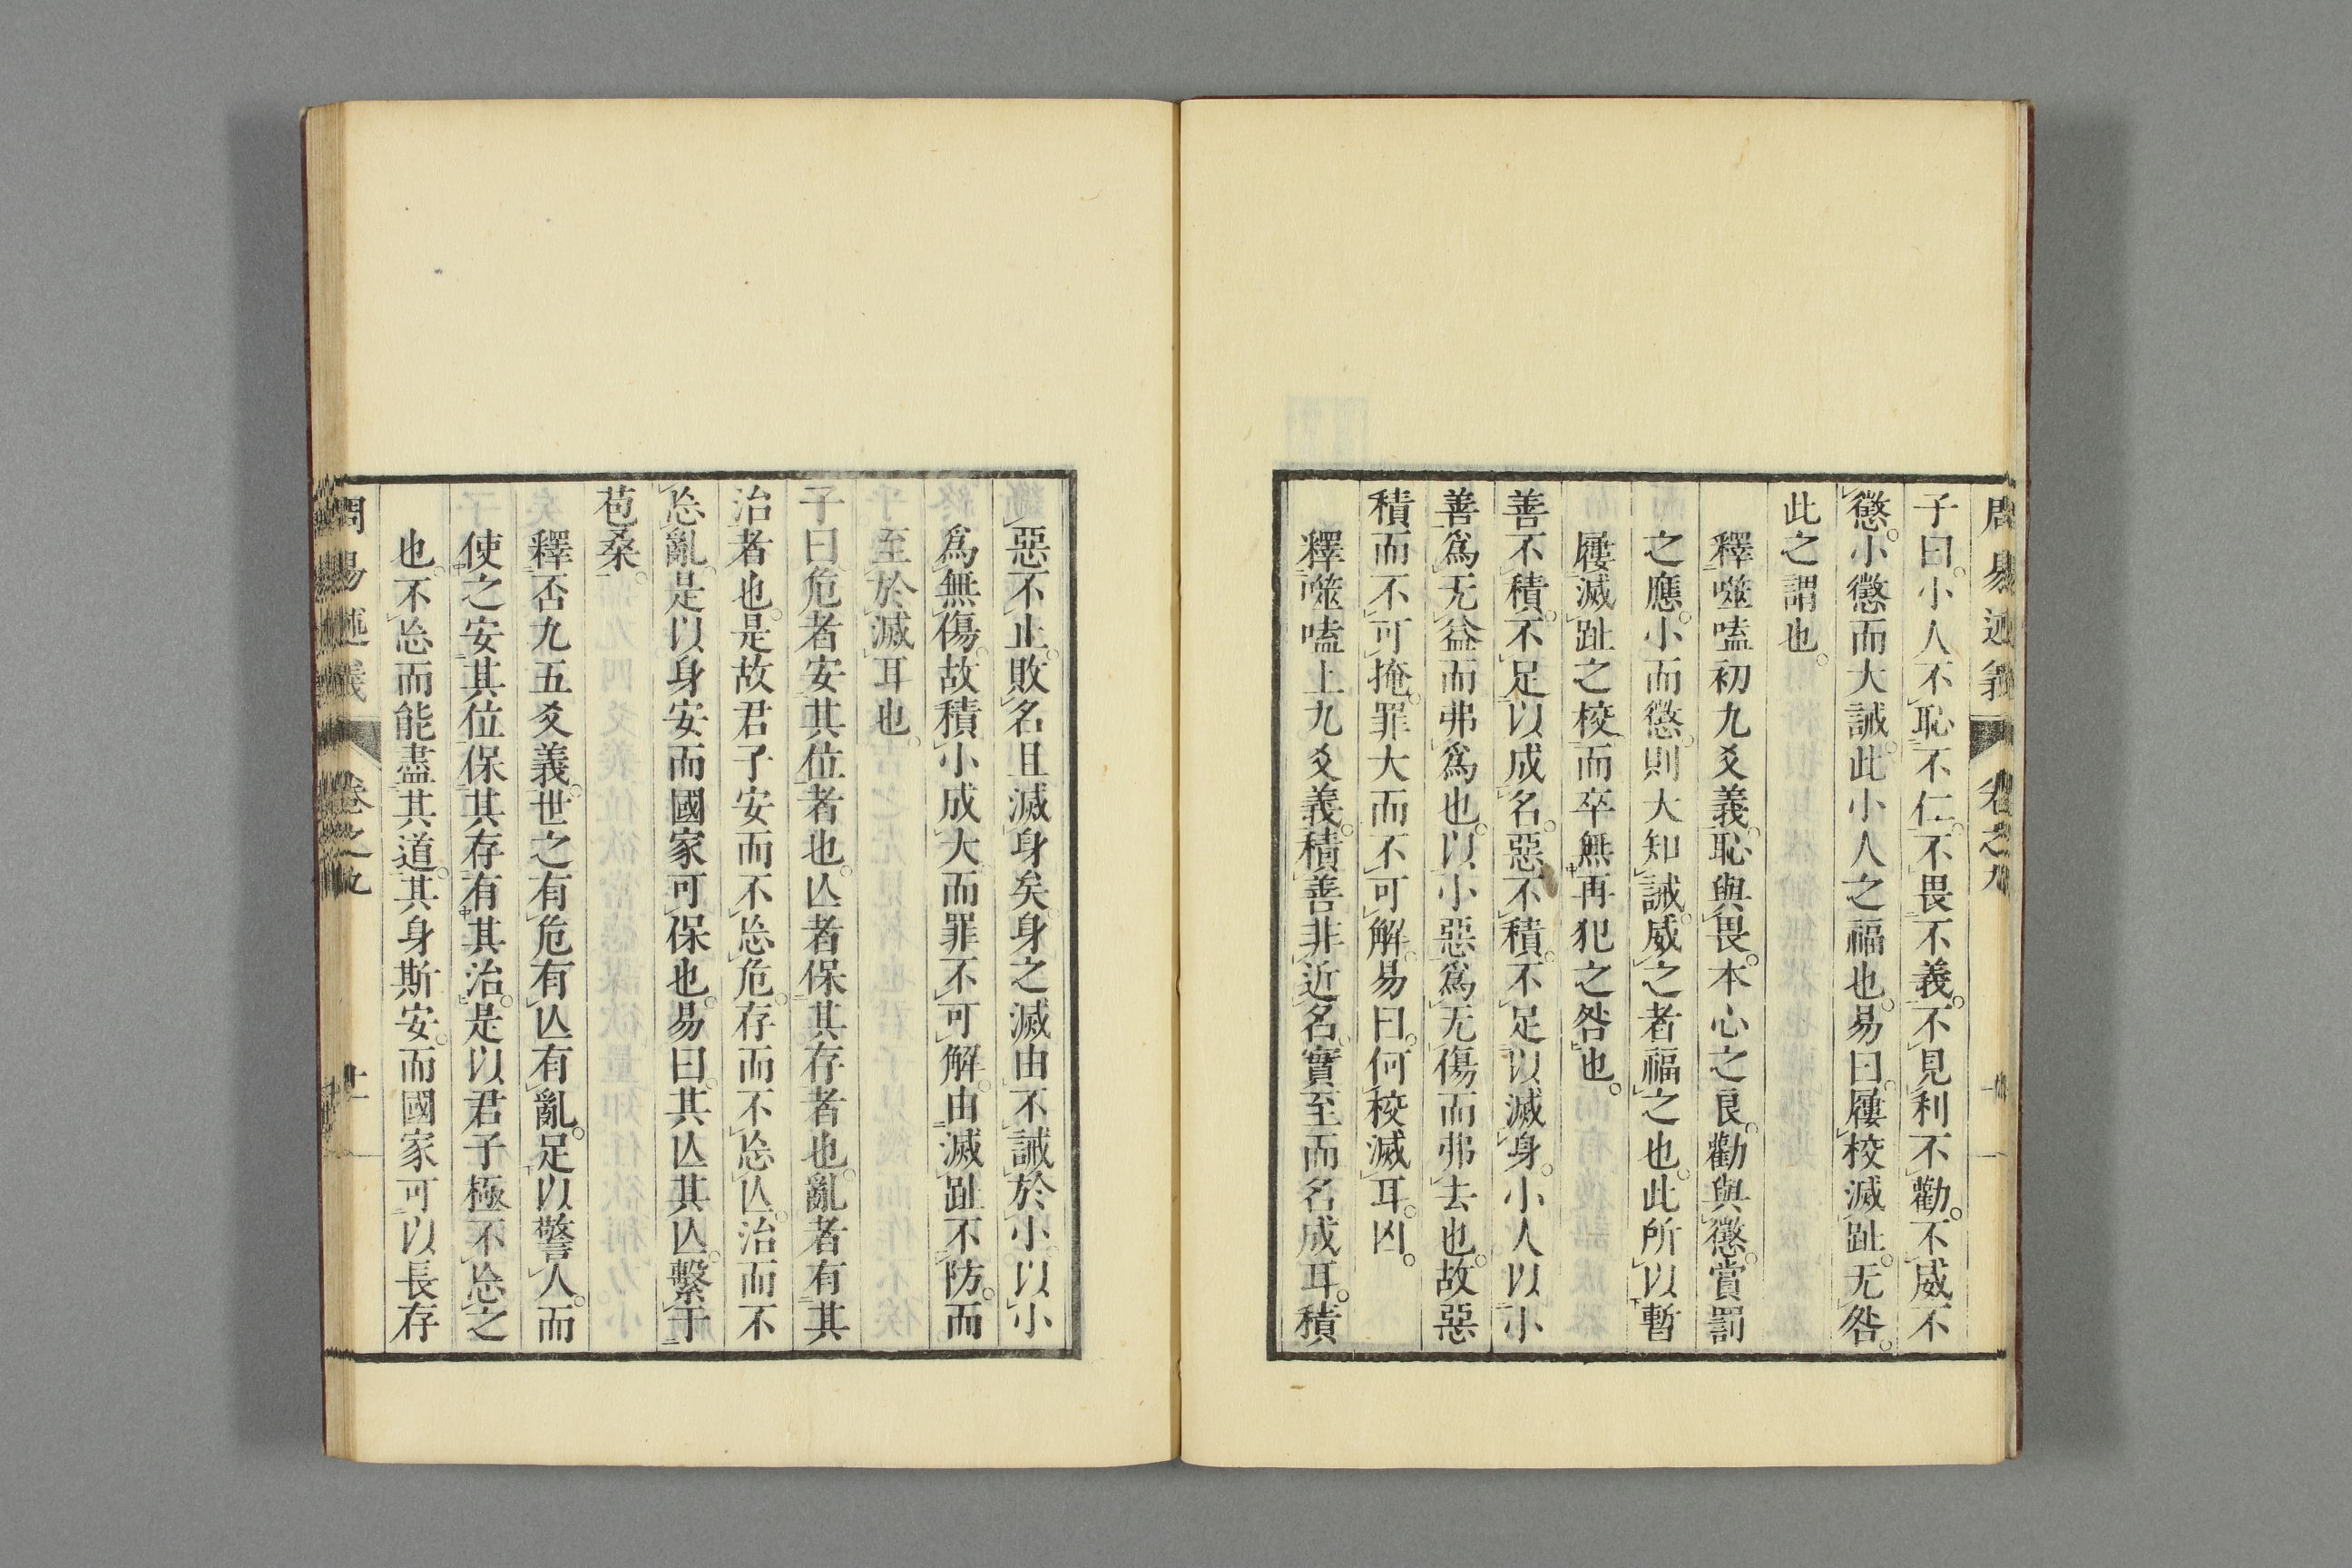 周易述義 卷之九
子曰。小人不恥不仁。不畏不義。不見利不勸。不威不
懲。小懲而大誡。此小人之福也。易曰。屨校滅趾。无咎。
此之謂也。
釋噬嗑初九爻義。恥與畏。本心之良。勸與懲。賞罰
之應。小而懲。則大知誡。威之者福之也。此所以暫
屨滅趾之校。而卒無再犯之咎也。
善不積。不足以成名。惡不積。不足以滅身。小人以小
善爲无益而弗爲也。以小惡爲无傷而弗去也。故惡
積而不可掩。罪大而不可解。易曰。何校滅耳。凶。
釋噬嗑上九爻義。積善非近名。實至而名成耳。積
惡不止。敗名且滅身矣。身之滅由不誡於小。以小
爲無傷。故積小成大。而罪不可解。由滅趾不防。而
至於滅耳也。
子曰。危者安其位者也。亾者保其存者也。亂者有其
治者也。是故君子安而不忘危。存而不忘亾。治而不
忘亂。是以身安而國家可保也。易曰。其亾其亾。繫于
苞桑。
釋否九五爻義。世之有危有亾有亂。足以警人。而
使之安其位保其存有其治。是以君子極不忘之
也。不忘而能盡其道。其身斯安。而國家可以長存
周易述義 卷之九 十一